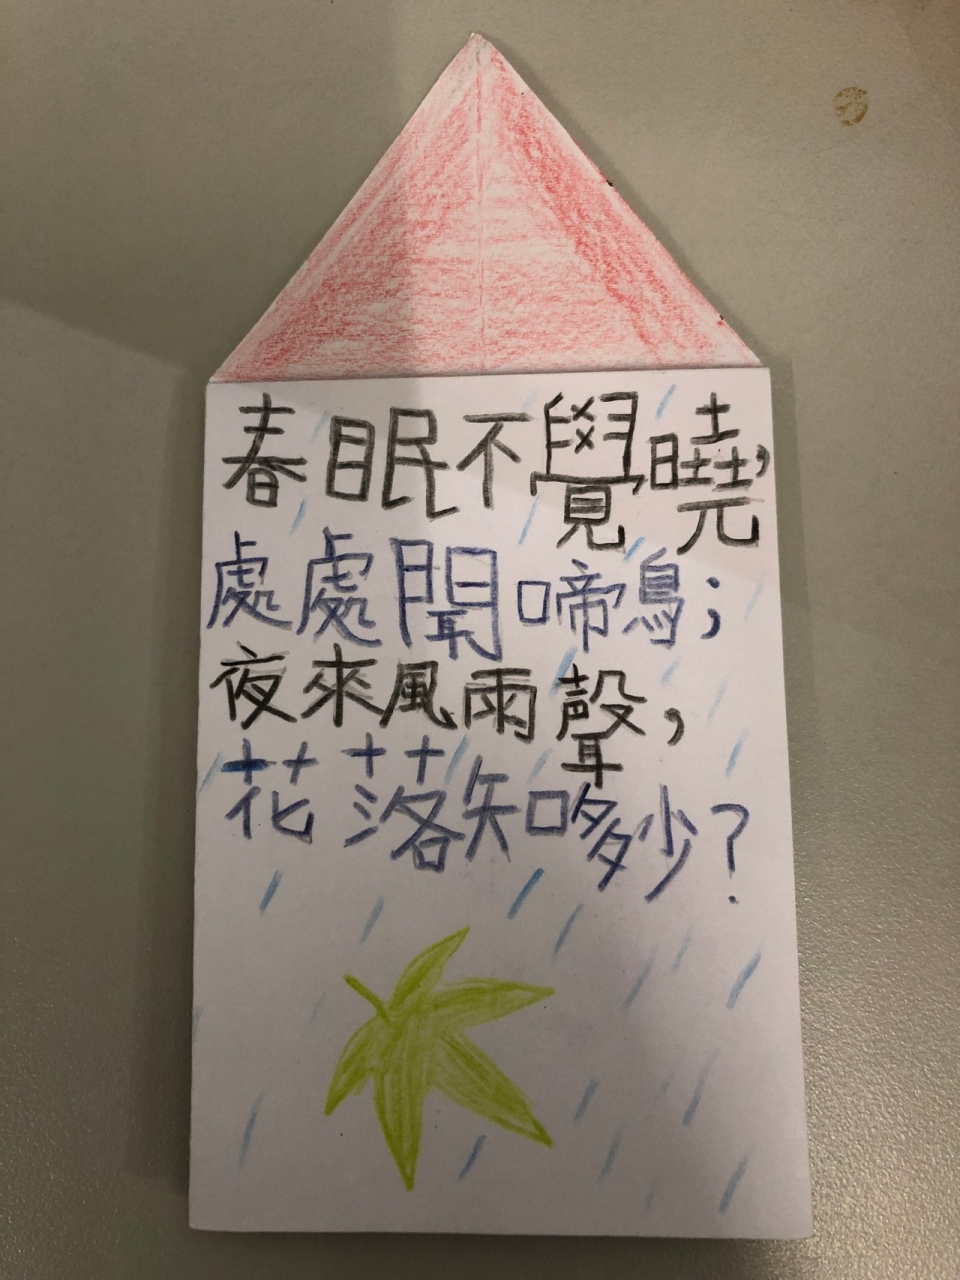 春眠不覺曉，
處處聞啼鳥；
夜來風雨聲，
花落知多少？